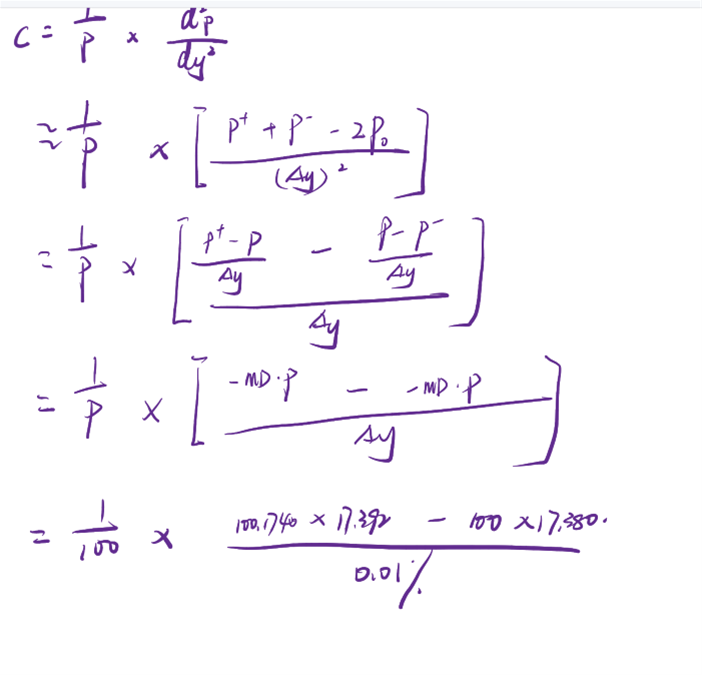 C = 1/P × d²P/dy²
≈ 1/P × [ (P⁺ + P⁻ - 2P₀) / (Δy)² ]
= 1/P × [ ((P⁺ - P)/Δy - (P - P⁻)/Δy) / Δy ]
= 1/P × [ (-MD·P - -MD·P) / Δy ]
= 1/100 × (100.1740 × 17.392 - 100 × 17.380.) / 0.01%